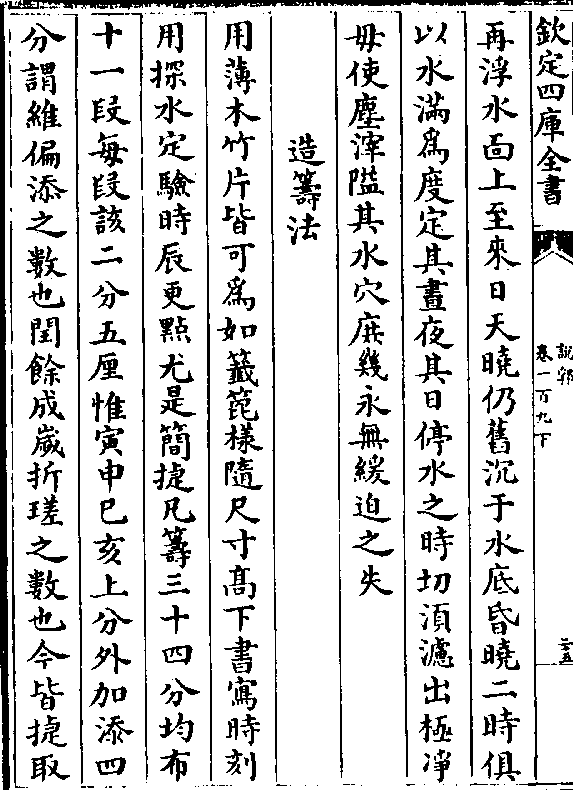 欽定四庫全書
說郛
卷一百九下
二五
再浮水面上至來日天曉仍舊沉于水底昏曉二時俱
以水滿爲度定其晝夜其日停水之時切須濾出極凈
毋使塵滓隘其水穴庶幾永無緩迫之失
造籌法
用薄木竹片皆可爲如籤箆樣隨尺寸高下書寫時刻
用探水定驗時辰更點尤是簡捷凡籌三十四分均布
十一段每段該二分五厘惟寅申巳亥上分外加添四
分謂維偏添之數也閏餘成嵗折瑳之數也今皆捷取